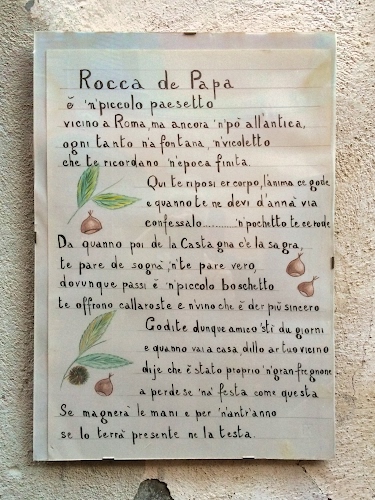 Rocca de Papa
è 'n piccolo paesetto
vicino a Roma, ma ancora 'n pò all'antica,
ogni tanto na fontana, n'vicoletto
che te ricordano 'n'epoca finita.
Qui te riposi er corpo, l'anima ce gode
e quanno te ne devi d'annà via
confessalo........... 'n pochetto te ce rode
Da quanno poi de la Castagna c'è la sagra,
te pare de sognà, n'te pare vero,
dovunque passi è 'n piccolo boschetto
te offrono callaroste e n'vino che è der più sincero
Godite dunque amico 'sti du giorni
e quanno vai a casa, dillo ar tuo vicino
dije che è stato proprio 'n gran fregnone
a perdese 'na festa come questa
Se magnerà le mani e per 'n'antr'anno
se lo terrà presente ne la testa.